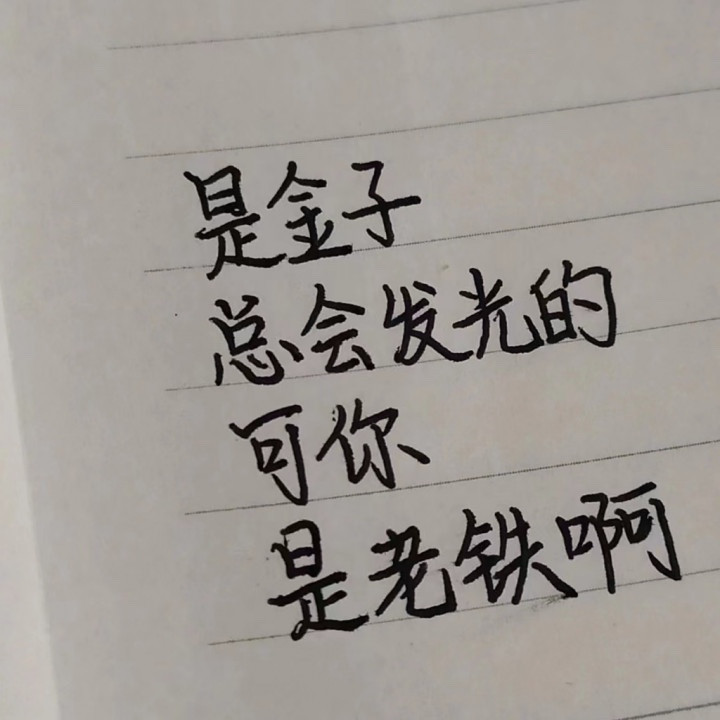 是金子
总会发光的
可你
是老铁啊